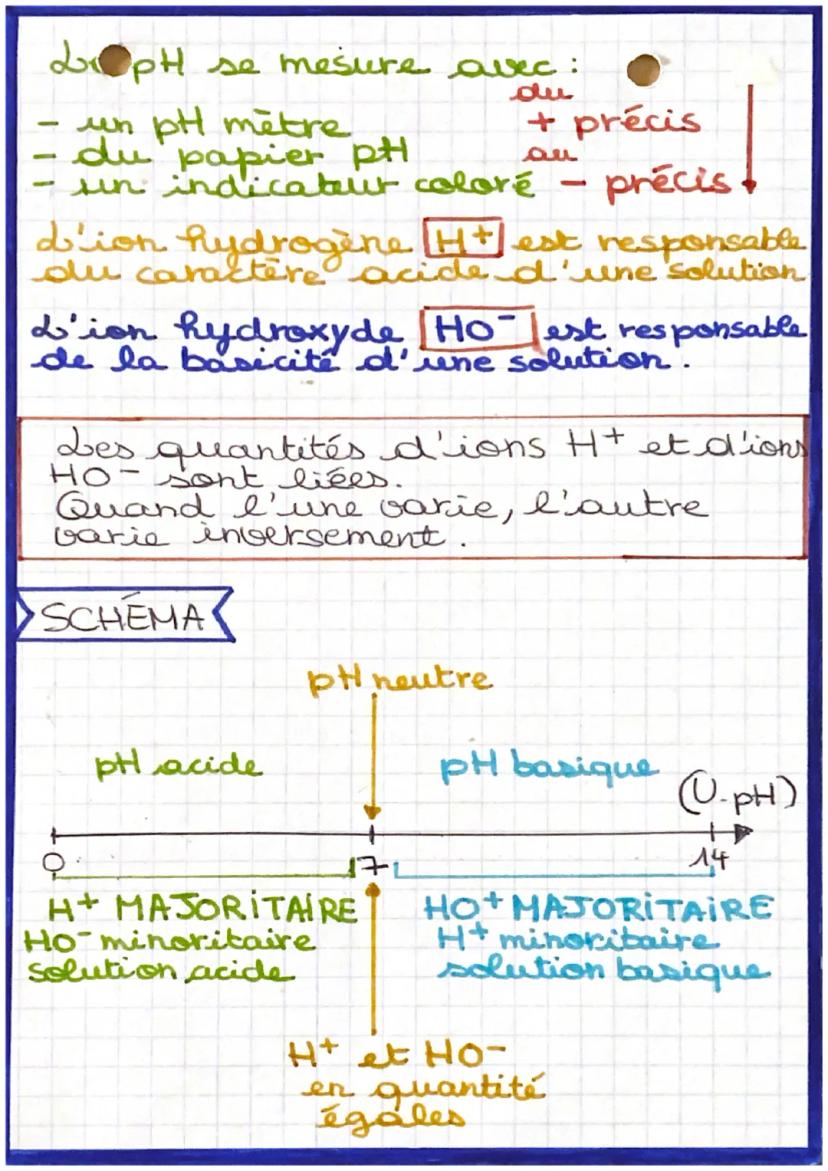 Le pH se mesure avec :
du
- un pH mètre + précis
- du papier pH au
- un indicateur coloré - précis
L'ion hydrogène H+ est responsable
du caractère acide d'une solution
L'ion hydroxyde HO- est responsable
de la basicité d'une solution.
Les quantités d'ions H+ et d'ions
HO- sont liées.
Quand l'une varie, l'autre
varie inversement.
SCHÉMA
pH neutre
pH acide pH basique
(U-pH)
0 7 14
H+ MAJORITAIRE HO+ MAJORITAIRE
HO- minoritaire H+ minoritaire
solution acide solution basique
H+ et HO-
en quantité
égales